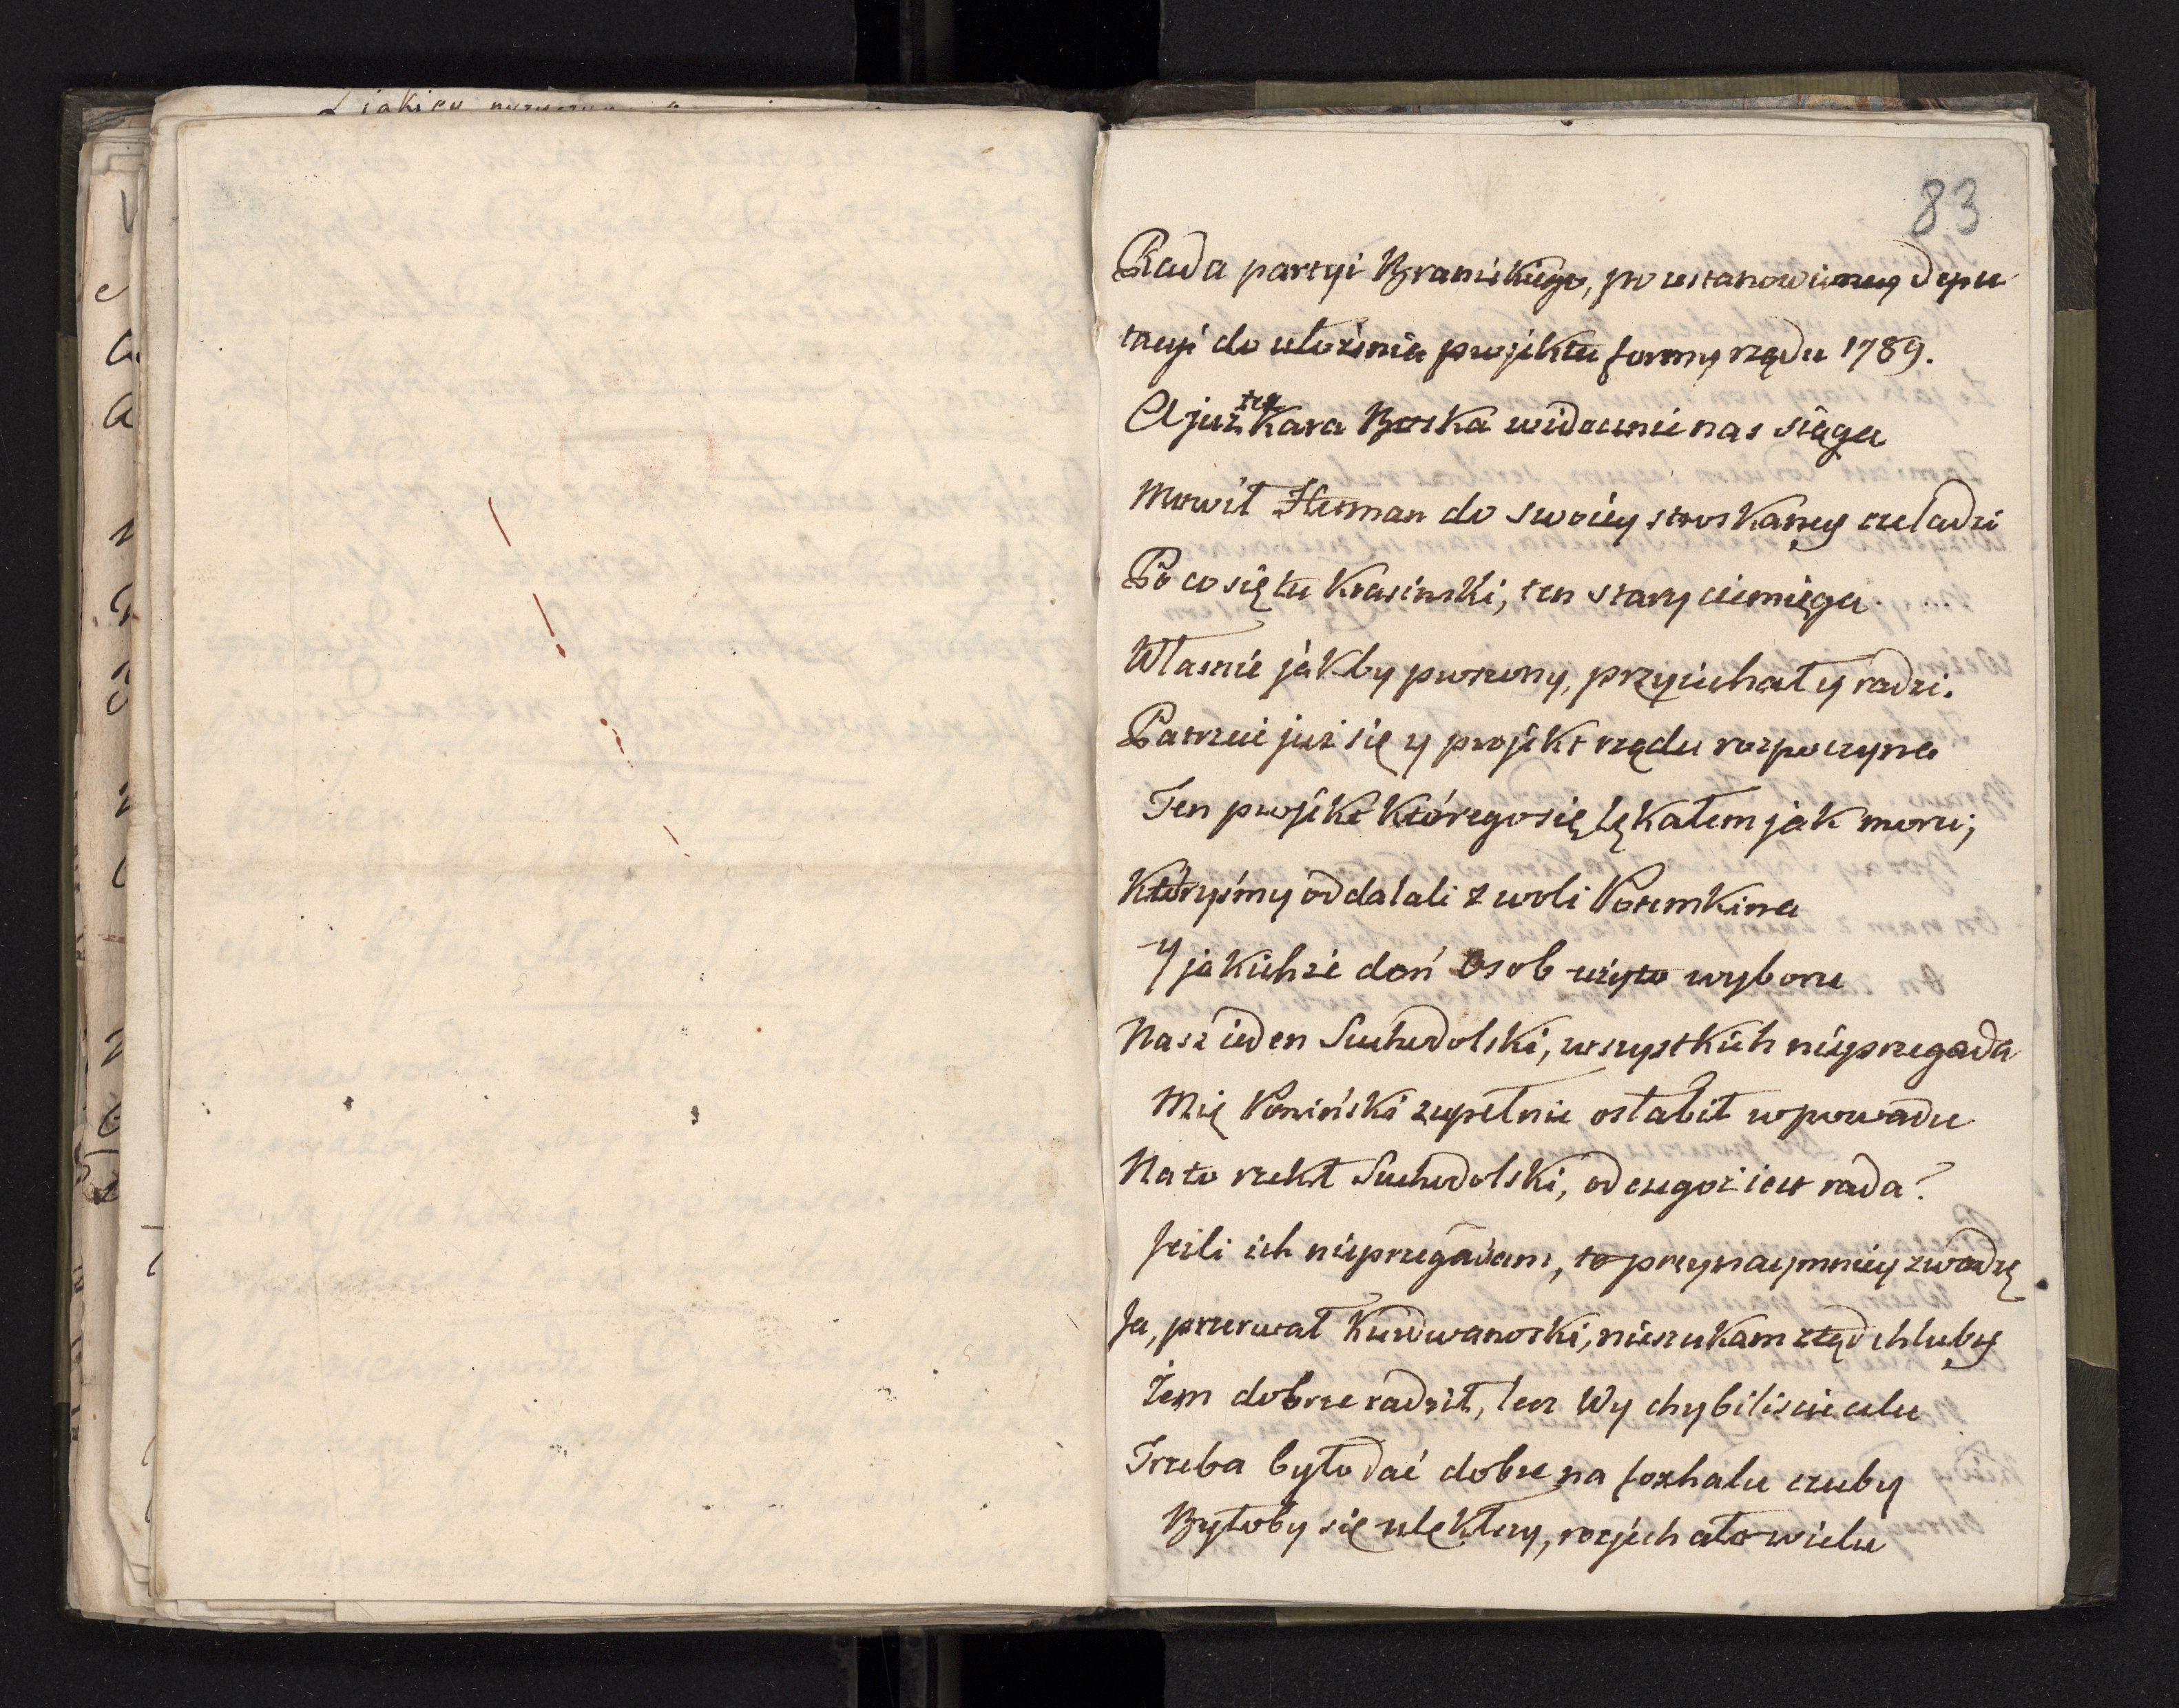 83
Rada partyi Branickiego, po ustanowioney depu
tacyi do ułożenia projektu formy rządu 1789.
A już teź kara Boska widocznie nas sięga
Mowił Hetman do swoiey stroskaney czeladzi
Po co się tu Krasinski, ten stary ciemięga
Własnie jakby proszony, przyiechał y radzi.
Patrzcie już się y projekt rządu rozpoczyna
Ten projekt którego się lękałem jak moru;
Któryśmy oddalali z woli Potemkina
Y jakichże doń Osob użyto wyboru
Nasz ieden Suchodolski, wszystkich nieprzegada
Mię Poniński zupełnie osłabił w powadze
Na to rzekł Suchodolski, od czegoż iest rada?
Jeżli ich nieprzegadam, to przynaymniey zwadzę
Ja, przerwał Kurdwanoski, nieszukam ztąd chluby
Żem dobrze radził, lecz Wy chybiliscie celu
Trzeba było dać dobre na foxhalu czuby
Byłoby się ulękłszy, rozjechało wielu